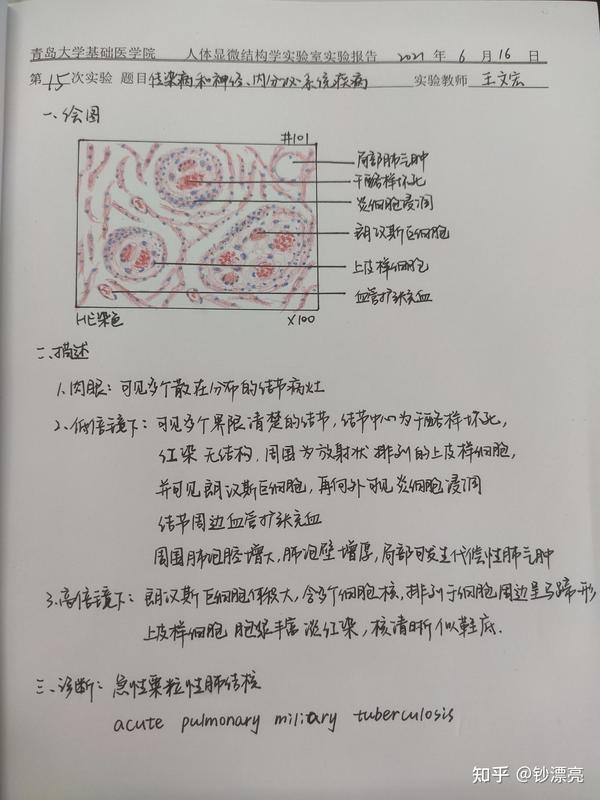 青岛大学基础医学院 人体显微结构学实验室实验报告 2021 年 6 月 16 日
第15次实验 题目 传染病和神经、内分泌系统疾病 实验教师 王文宏
一、绘图
#101
局部肺气肿
干酪样坏死
炎细胞浸润
朗汉斯巨细胞
上皮样细胞
血管扩张充血
HE染色 X100
二、描述
1、肉眼：可见多个散在分布的结节病灶
2、低倍镜下：可见多个界限清楚的结节，结节中心为干酪样坏死，
红染无结构，周围为放射状排列的上皮样细胞，
并可见朗汉斯巨细胞，再向外可见炎细胞浸润
结节周边血管扩张充血
周围肺泡腔增大，肺泡壁增厚，局部可发生代偿性肺气肿
3、高倍镜下：朗汉斯巨细胞体极大，含多个细胞核，排列于细胞周边呈马蹄形，
上皮样细胞 胞浆丰富 淡红染，核清晰似鞋底.
三、诊断：急性粟粒性肺结核
acute pulmonary miliary tuberculosis
知乎 @钞漂亮